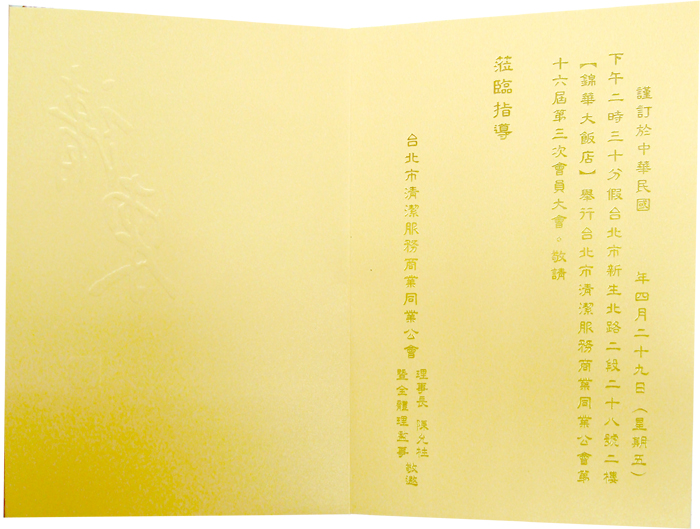 謹訂於中華民國　　年四月二十九日（星期五）
下午二時三十分假台北市新生北路二段二十八號二樓
【錦華大飯店】舉行台北市清潔服務商業同業公會第
十六屆第三次會員大會。敬請
蒞臨指導
台北市清潔服務商業同業公會
理事長
暨全體理監事 敬邀